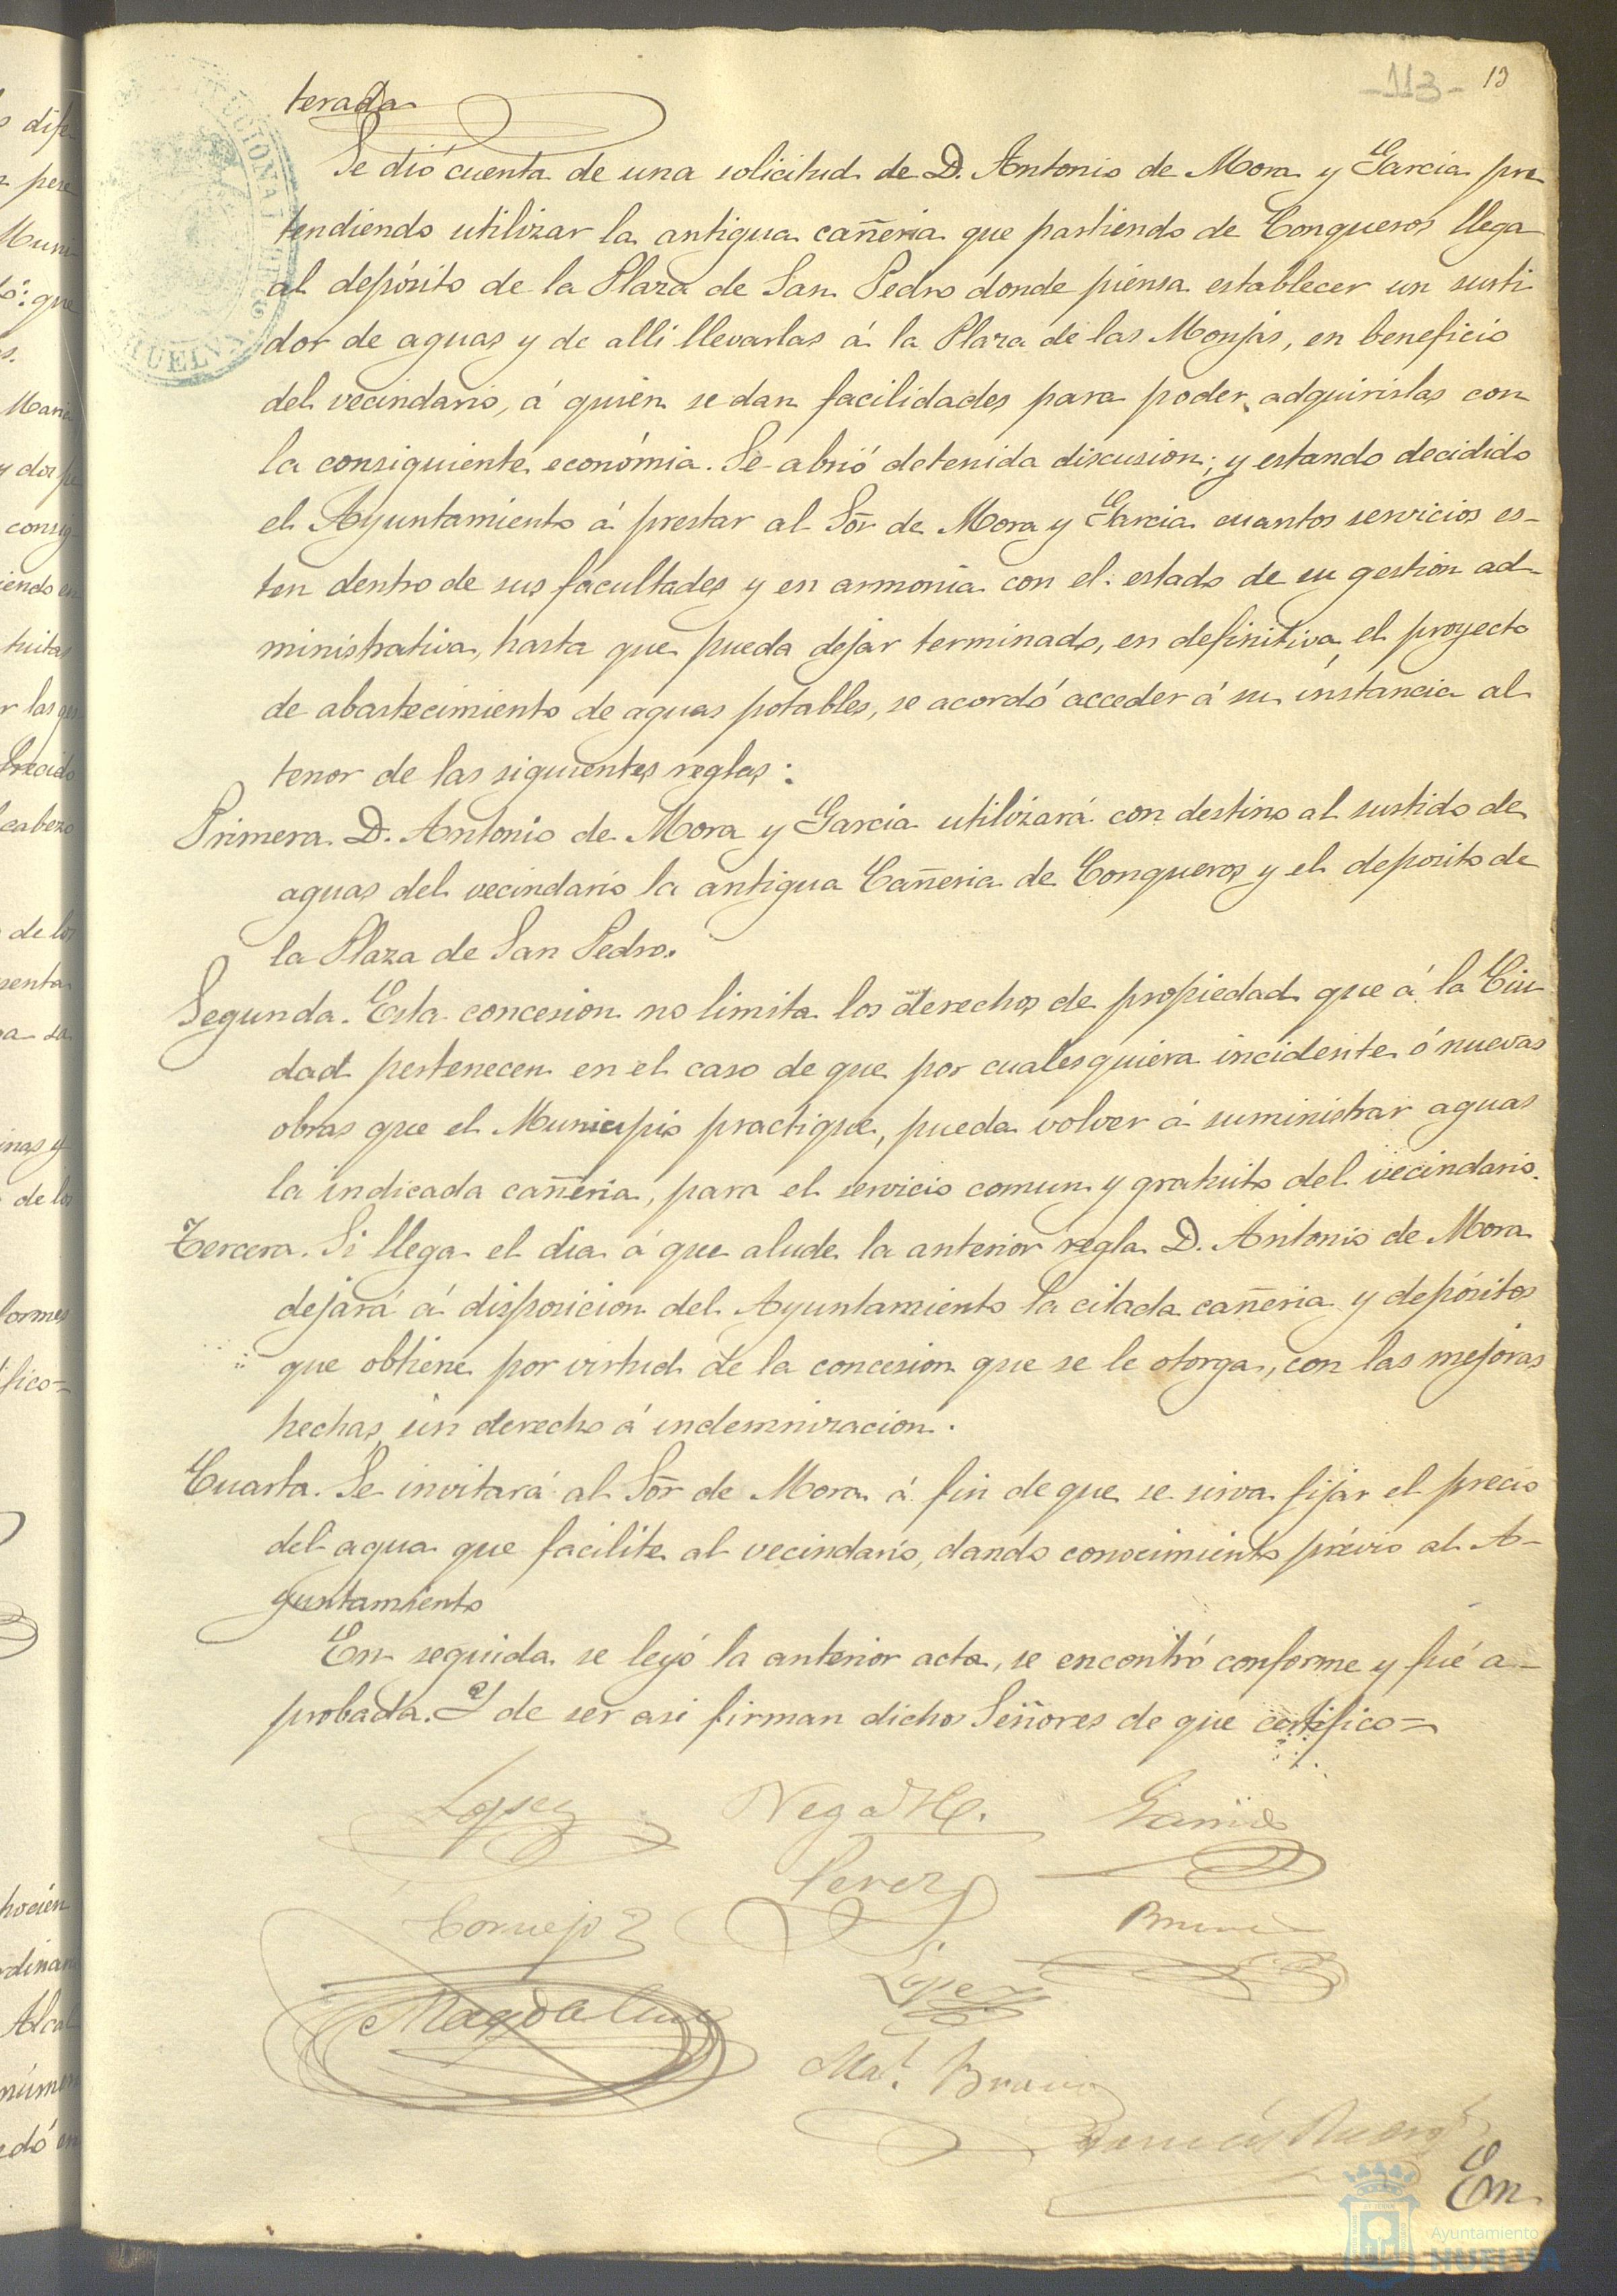 -113- 13
terada
Se dió cuenta de una solicitud de D. Antonio de Mora y Garcia pre
tendiendo utilizar la antigua cañeria que partiendo de Conqueros llega
al depósito de la Plaza de San Pedro donde piensa establecer un surti
dor de aguas y de alli llevarlas á la Plaza de las Monjas, en beneficio
del vecindario, á quien se dan facilidades para poder adquirirlas con
la consiguiente económia. Se abrió detenida discusion; y estando decidido
el Ayuntamiento á prestar al Sor de Mora y Garcia cuantos servicios es-
ten dentro de sus facultades y en armonia con el estado de su gestion ad-
ministrativa, hasta que pueda dejar terminado, en definitiva, el proyecto
de abastecimiento de aguas potables, se acordó acceder á su instancia al
tenor de las siguientes reglas:
Primera. D. Antonio de Mora y Garcia utilizará con destino al surtido de
aguas del vecindario la antigua Cañeria de Conqueros y el deposito de
la Plaza de San Pedro.
Segunda. Esta concesion no limita los derechos de propiedad que á la Ciu
dad pertenecen en el caso de que por cualesquiera incidente ó nuevas
obras que el Municipio practique, pueda volver á suministrar aguas
la indicada cañeria, para el servicio comun y gratuito del vecindario.
Tercera. Si llega el dia á que alude la anterior regla D. Antonio de Mora
dejará á disposicion del Ayuntamiento la citada cañeria y depósitos
que obtiene por virtud de la concesion que se le otorga, con las mejoras
hechas, sin derecho á indemnizacion.
Cuarta. Se invitará al Sor de Mora á fin de que se sirva fijar el precio
del agua que facilite al vecindario, dando conocimiento prévio al A-
yuntamiento
En seguida se leyó la anterior acta, se encontró conforme y fué a-
probada. Y de ser asi firman dichos Señores de que certifico=
Lopez Vega Garcia
Perez
Cornejo
Lopez
Magdalena
Bravo
En
Ayuntamiento
HUELVA